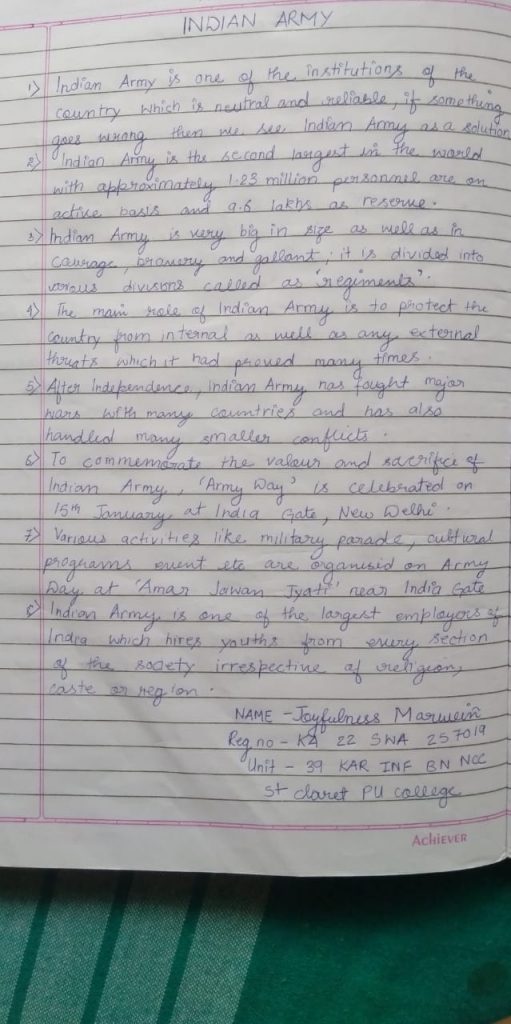 INDIAN ARMY
1) Indian Army is one of the institutions of the
country which is neutral and reliable, if something
goes wrong then we see Indian Army as a solution
2) Indian Army is the second largest in the world
with approximately 1.23 million personnel are on
active basis and 9.6 lakhs as reserve.
3) Indian Army is very big in size as well as in
Courage, bravery and gallant; it is divided into
various divisions called as 'regiments'.
4) The main role of Indian Army is to protect the
Country from internal as well as any external
thruts which it had proved many times.
5) After Independence, Indian Army has fought major
wars with many countries and has also
handled many smaller conflicts.
6) To commemorate the valour and sacrifice of
Indian Army, 'Army Day' is celebrated on
15th January at India Gate, New Delhi.
7) Various activities like military parade, cultural
programs event etc are organised on Army
Day at 'Amar Jawan Jyoti' near India Gate
8) Indian Army is one of the largest employers of
India which hires youths from every section
of the society irrespective of religion,
caste or region.
NAME - Joyfulness Marwein
Reg no - KA 22 SWA 257019
Unit - 39 KAR INF BN NCC
St claret PU college
ACHIEVER